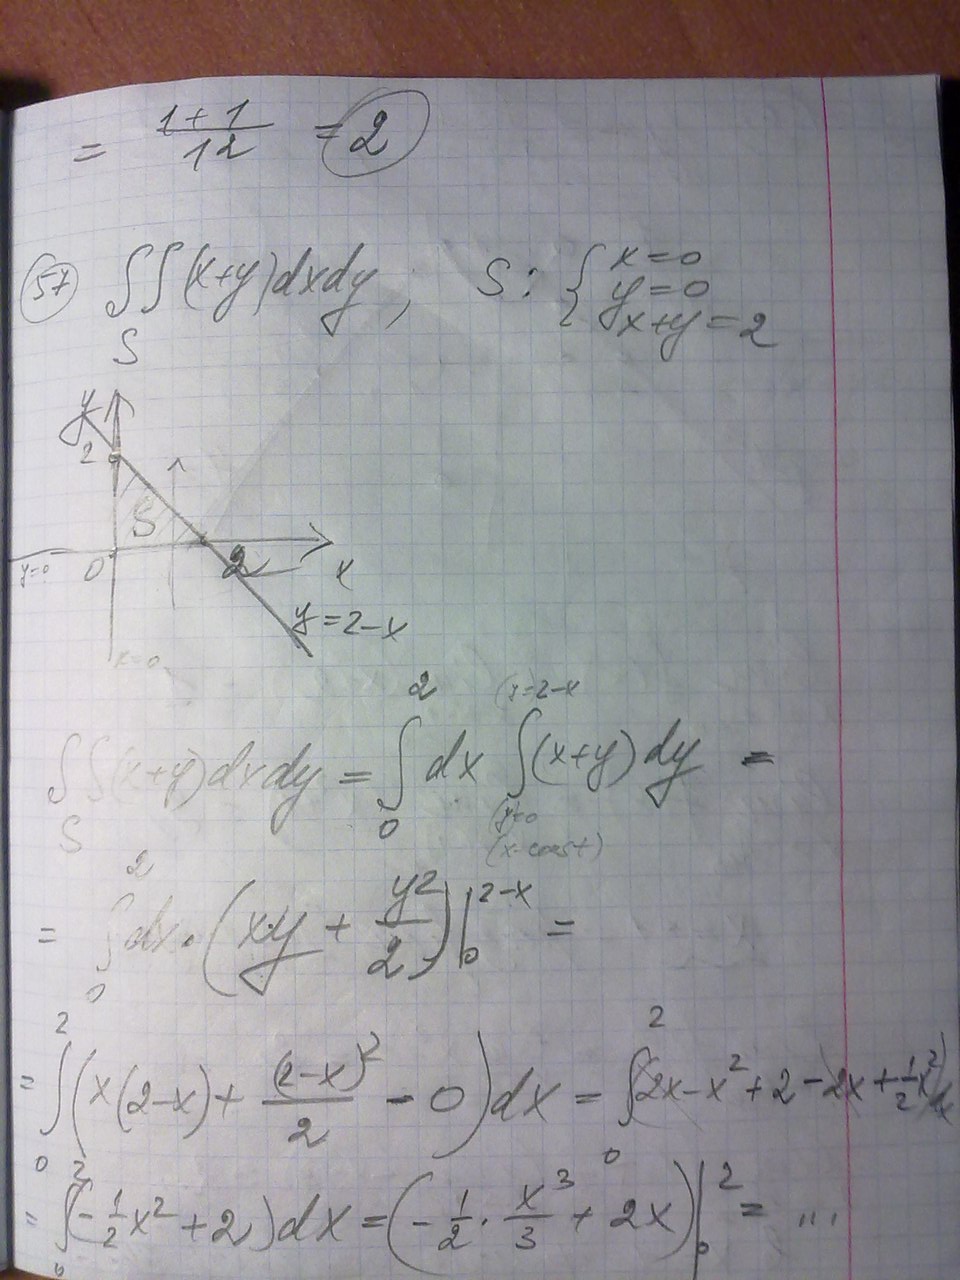 = (1+1)/12 = 2
57) ∫∫(x+y)dxdy ; S: { x=0
S y=0
x+y=2
y
2
S
y=0 0 2 x
y=2-x
x=0
2 (y=2-x
∫∫(x+y)dxdy = ∫dx ∫(x+y)dy =
S 0 (y=0
(x-const)
2
= ∫dx·(xy + y²/2)|₀^(2-x) =
0
2 2
= ∫(x(2-x) + (2-x)²/2 - 0)dx = ∫(2x-x²+2-2x+½x²)dx
0 0
2
= ∫(-½x²+2)dx = (-½·x³/3 + 2x)|₀² = ...
0